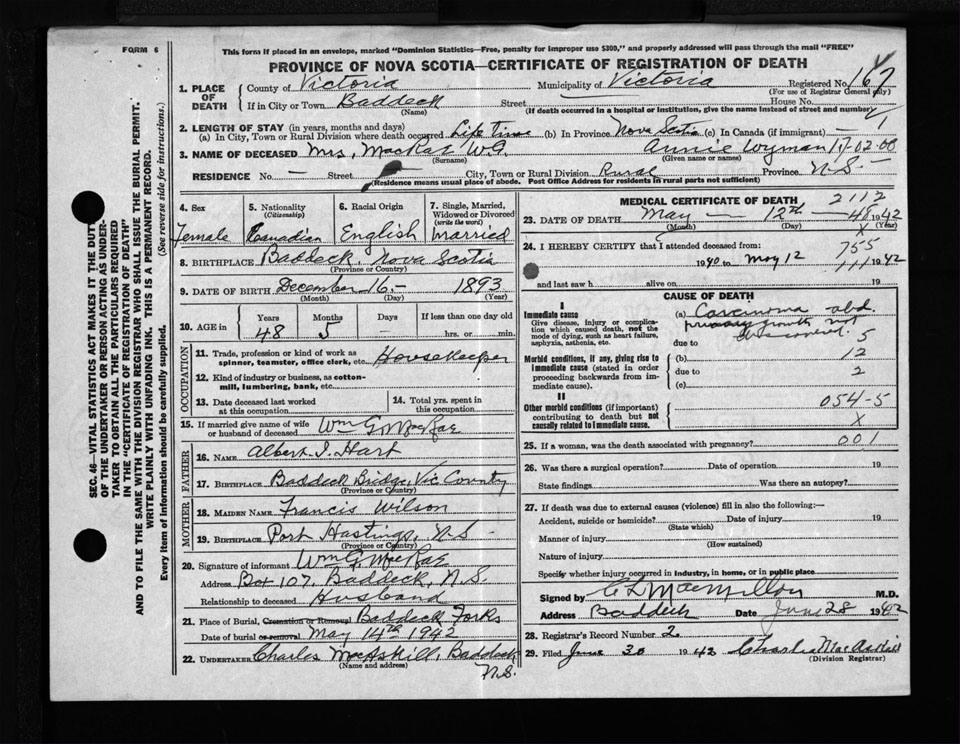 FORM 6
This form if placed in an envelope, marked "Dominion Statistics—Free, penalty for improper use $300," and properly addressed will pass through the mail "FREE"
PROVINCE OF NOVA SCOTIA—CERTIFICATE OF REGISTRATION OF DEATH
1. PLACE OF DEATH
County of Victoria Municipality of Victoria Registered No. 167
(For use of Registrar General only)
If in City or Town Baddeck Street House No.
(Name) (If death occurred in a hospital or institution, give the name instead of street and number)
2. LENGTH OF STAY (in years, months and days)
(a) In City, Town or Rural Division where death occurred Life time (b) In Province Nova Scotia (c) In Canada (if immigrant) —
3. NAME OF DECEASED Mrs, MacRae W.G. Annie Wyman 17-02-00
(Surname) (Given name or names)
RESIDENCE No. — Street City, Town or Rural Division Rural Province N.S.
(Residence means usual place of abode. Post Office Address for residents in rural parts not sufficient)
4. Sex
Female
5. Nationality
(Citizenship)
Canadian
6. Racial Origin
English
7. Single, Married, Widowed or Divorced
(write the word)
Married
8. BIRTHPLACE Baddeck, Nova Scotia
(Province or Country)
9. DATE OF BIRTH December 16 — 1893
(Month) (Day) (Year)
10. AGE in
Years Months Days If less than one day old
48 5 — hrs. or min.
OCCUPATION
11. Trade, profession or kind of work as spinner, teamster, office clerk, etc. Housekeeper
12. Kind of industry or business, as cotton-mill, lumbering, bank, etc.
13. Date deceased last worked at this occupation
14. Total yrs. spent in this occupation
15. If married give name of wife or husband of deceased Wm G MacRae
FATHER
16. NAME Albert I. Hart
17. BIRTHPLACE Baddeck Bridge, Vic County
(Province or Country)
MOTHER
18. MAIDEN NAME Francis Wilson
19. BIRTHPLACE Port Hastings, N.S.
(Province or Country)
20. Signature of informant Wm G. MacRae
Address Box 107, Baddeck, N.S.
Relationship to deceased Husband
21. Place of Burial, Cremation or Removal Baddeck Forks
Date of burial or removal May 14th 1942
22. UNDERTAKER Charles MacAskill, Baddeck, N.S.
(Name and address)
MEDICAL CERTIFICATE OF DEATH
2112
23. DATE OF DEATH May — 12th — 1942
(Month) (Day) (Year)
24. I HEREBY CERTIFY that I attended deceased from:
755
1940 to May 12 1942
and last saw h alive on 19
CAUSE OF DEATH
I
Immediate cause
Give disease, injury or complication which caused death, not the mode of dying, such as heart failure, asphyxia, asthenia, etc.
(a) Carcinoma abd.
primary growth
due to 5
Morbid conditions, if any, giving rise to immediate cause (stated in order proceeding backwards from immediate cause).
(b) 12
due to 2
(c)
II
Other morbid conditions (if important) contributing to death but not causally related to immediate cause.
054-5
X
25. If a woman, was the death associated with pregnancy? 001
26. Was there a surgical operation? Date of operation 19
State findings Was there an autopsy?
27. If death was due to external causes (violence) fill in also the following:—
Accident, suicide or homicide? Date of injury 19
(State which)
Manner of injury
(How sustained)
Nature of injury
Specify whether injury occurred in industry, in home, or in public place
Signed by C L MacMillan M.D.
Address Baddeck Date June 28 1942
28. Registrar's Record Number 2
29. Filed June 30 1942 Charles
(Division Registrar)
SEC. 46—VITAL STATISTICS ACT MAKES IT THE DUTY
OF THE UNDERTAKER OR PERSON ACTING AS UNDER-
TAKER TO OBTAIN ALL THE PARTICULARS REQUIRED
IN THE "CERTIFICATE OF REGISTRATION OF DEATH"
AND TO FILE THE SAME WITH THE DIVISION REGISTRAR WHO SHALL ISSUE THE BURIAL PERMIT.
WRITE PLAINLY WITH UNFADING INK. THIS IS A PERMANENT RECORD.
Every item of information should be carefully supplied. (See reverse side for instructions.)